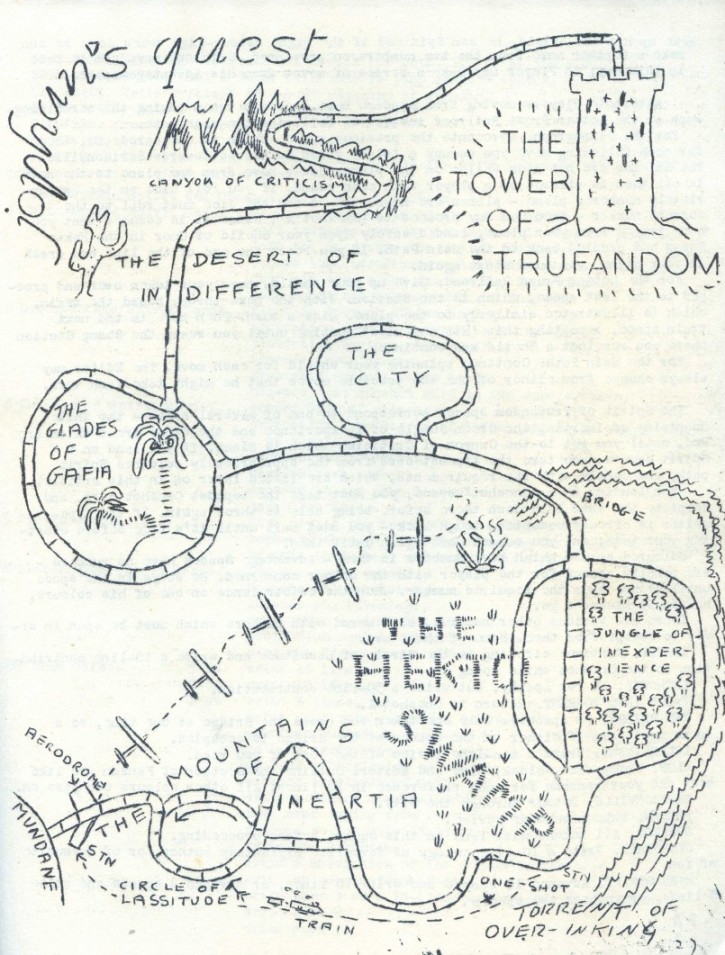 jophan's quest
CANYON OF CRITICISM
THE
TOWER
OF
TRUFANDOM
THE DESERT OF
IN DIFFERENCE
THE
CITY
THE
GLADES
OF
GAFIA
BRIDGE
THE
JUNGLE OF
INEXPER-
IENCE
THE
HEKTO
SWAMP
THE MOUNTAINS
OF
INERTIA
AERODROME
MUNDANE
STN
CIRCLE OF
LASSITUDE
TRAIN
ONE-SHOT STN
TORRENT OF
OVER-INKING